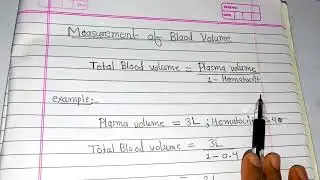 Measurement of Blood Volume
Total Blood volume = Plasma volume
1 - Hematocrit
example:-
Plasma volume = 3L ; Hematocrit
Total Blood volume = 3L
1-0.4